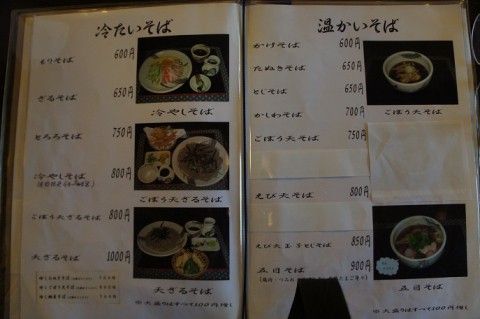 冷たいそば
もりそば 600円
ざるそば 650円
冷やしそば
とろろそば 750円
冷やしそば 800円
ごぼう天ざるそば
ごぼう天ざるそば 800円
天ざるそば 1000円
天ざるそば
※大盛りはすべて100円増し
温かいそば
かけそば 600円
たぬきそば 650円
とじそば 650円
かしわそば 700円
ごぼう天そば
ごぼう天そば 750円
えび天そば 800円
えび天玉子とじそば 850円
五目そば 900円
五目そば
※大盛りはすべて100円増し